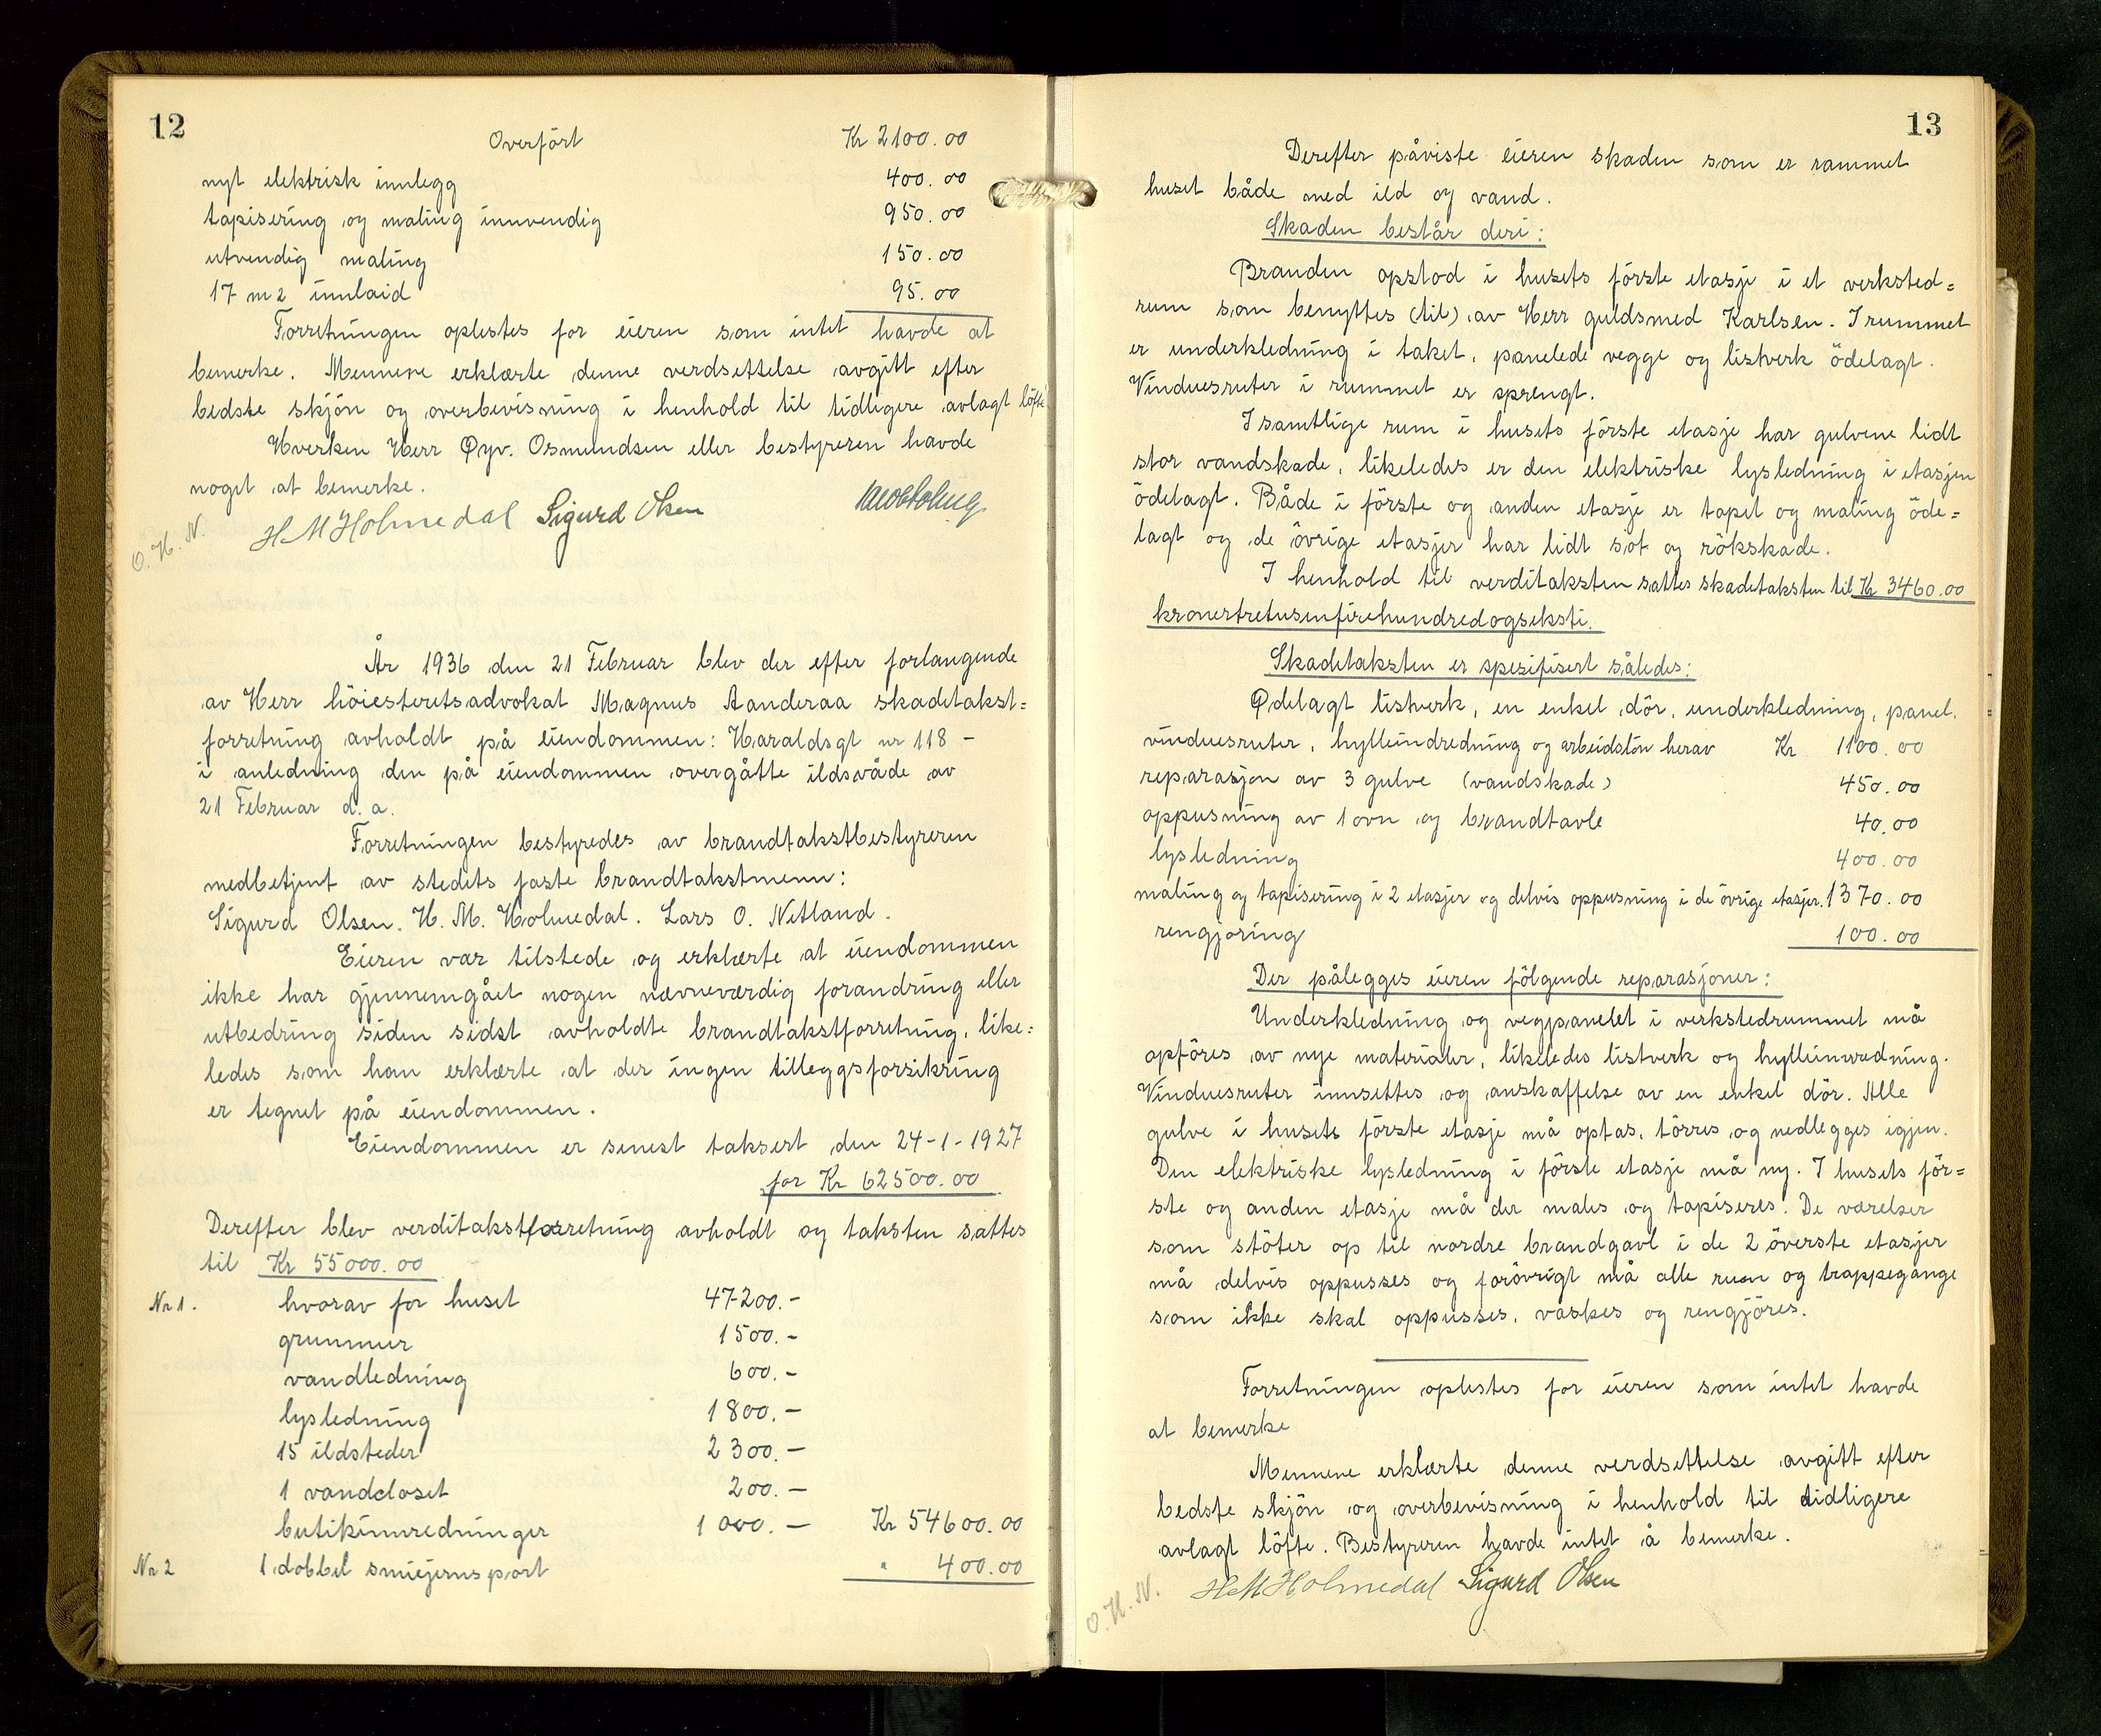 12
Overført Kr 2100.00
nyt elektrisk innlegg 400.00
tapisering og maling innvendig 950.00
utvendig maling 150.00
17 m2 innlaid 95.00
Forretningen oplestes for eieren som intet havde at
bemerke. Mennene erklærte denne verdsettelse avgitt efter
bedste skjön og overbevisning i henhold til tidligere avlagt löfte
Hverken Herr Øyv. Osmundsen eller bestyreren havde
noget at bemerke.
H M Holmedal Sigurd Olsen
O. H. N.
År 1936 den 21 Februar blev der efter forlangende
av Herr höiesteretsadvokat Magnus Aanderaa skadetakst=
forretning avholdt på eiendommen: Haraldsgt nr 118 -
i anledning den på eiendommen overgåtte ildsvåde av
21 Februar d. a.
Forretningen bestyredes av brandtakstbestyreren
medbetjent av stedets faste brandtakstmenn:
Sigurd Olsen. H. M. Holmedal. Lars O. Netland.
Eieren var tilstede og erklærte at eiendommen
ikke har gjennemgået nogen nævneværdig forandring eller
utbedring siden sidst avholdte brandtakstforretning, like=
ledes som han erklærte at der ingen tilleggsforsikring
er tegnet på eiendommen.
Eiendommen er senest taksert den 24-1-1927
for Kr 62500.00
Derefter blev verditakstforretning avholdt og taksten sattes
til Kr 55000.00
Nr 1. hvorav for huset 47200.-
grunmur 1500.-
vandledning 600.-
lysledning 1800.-
15 ildsteder 2300.-
1 vandcloset 200.-
butikinnredninger 1000.- Kr 54600.00
Nr 2 1 dobbel smiejernsport " 400.00
13
Derefter påviste eieren skaden som er rammet
huset både med ild og vand.
Skaden består deri:
Branden opstod i husets förste etasje i et verksted=
rum som benyttes (til) av Herr guldsmed Karlsen. I rummet
er underkledning i taket, panelede vegge og listverk ödelagt.
Vinduesruter i rummet er sprengt.
I samtlige rum i husets förste etasje har gulvene lidt
stor vandskade, likeledes er den elektriske lysledning i etasjen
ödelagt. Både i förste og anden etasje er tapet og maling öde=
lagt og de övrige etasjer har lidt sot og rökskade.
I henhold til verditaksten sattes skadetaksten til Kr 3460.00
kronertretusenfirehundredogseksti.
Skadetaksten er spesifisert således:
Ødelagt listverk, en enkel dör, underkledning, panel.
vinduesruter, hylleindredning og arbeidslön herav Kr 1100.00
reparasjon av 3 gulve (vandskade) 450.00
oppusning av 1 ovn og brandtavle 40.00
lysledning 400.00
maling og tapisering i 2 etasjer og delvis oppusning i de övrige etasjer. 1370.00
rengjöring 100.00
Der pålegges eieren fölgende reparasjoner:
Underkledning og vegpanelet i verkstedrummet må
opföres av nye materialer, likeledes listverk og hylleinnredning.
Vinduesruter innsettes og anskaffelse av en enkel dör. Alle
gulve i husets förste etasje må optas, törres og nedlegges igjen.
Den elektriske lysledning i förste etasje må ny. I husets för=
ste og anden etasje må der males og tapiseres. De værelser
som stöter op til nordre brandgavl i de 2 överste etasjer
må delvis oppusses og forövrigt må alle rum og trappegange
som ikke skal oppusses, vaskes og rengjöres.
Forretningen oplestes for eieren som intet havde
at bemerke
Mennene erklærte denne verdsettelse avgitt efter
bedste skjön og overbevisning i henhold til tidligere
avlagt löfte. Bestyreren havde intet å bemerke.
H M Holmedal Sigurd Olsen
O. H. N.